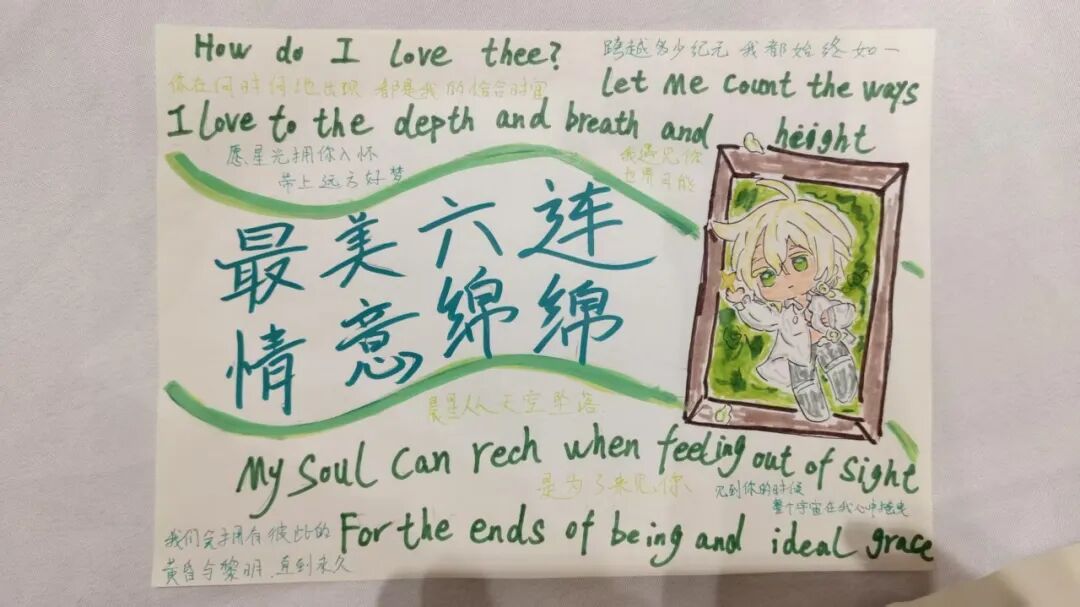 How do I love thee?
跨越多少纪元 我都始终如一
你在何时何地出现 都是我的恰合时宜
Let Me Count the ways
I love to the depth and breath and height
愿星光拥你入怀
带上远方好梦
我遇见你
世界可能
最美六连
情意绵绵
晨星从天空坠落
My Soul Can rech when feeling out of Sight
是为了来见你
见到你的时候
整个宇宙在我心中
我们会拥有彼此的
黄昏与黎明，直到永久
For the ends of being and ideal grace